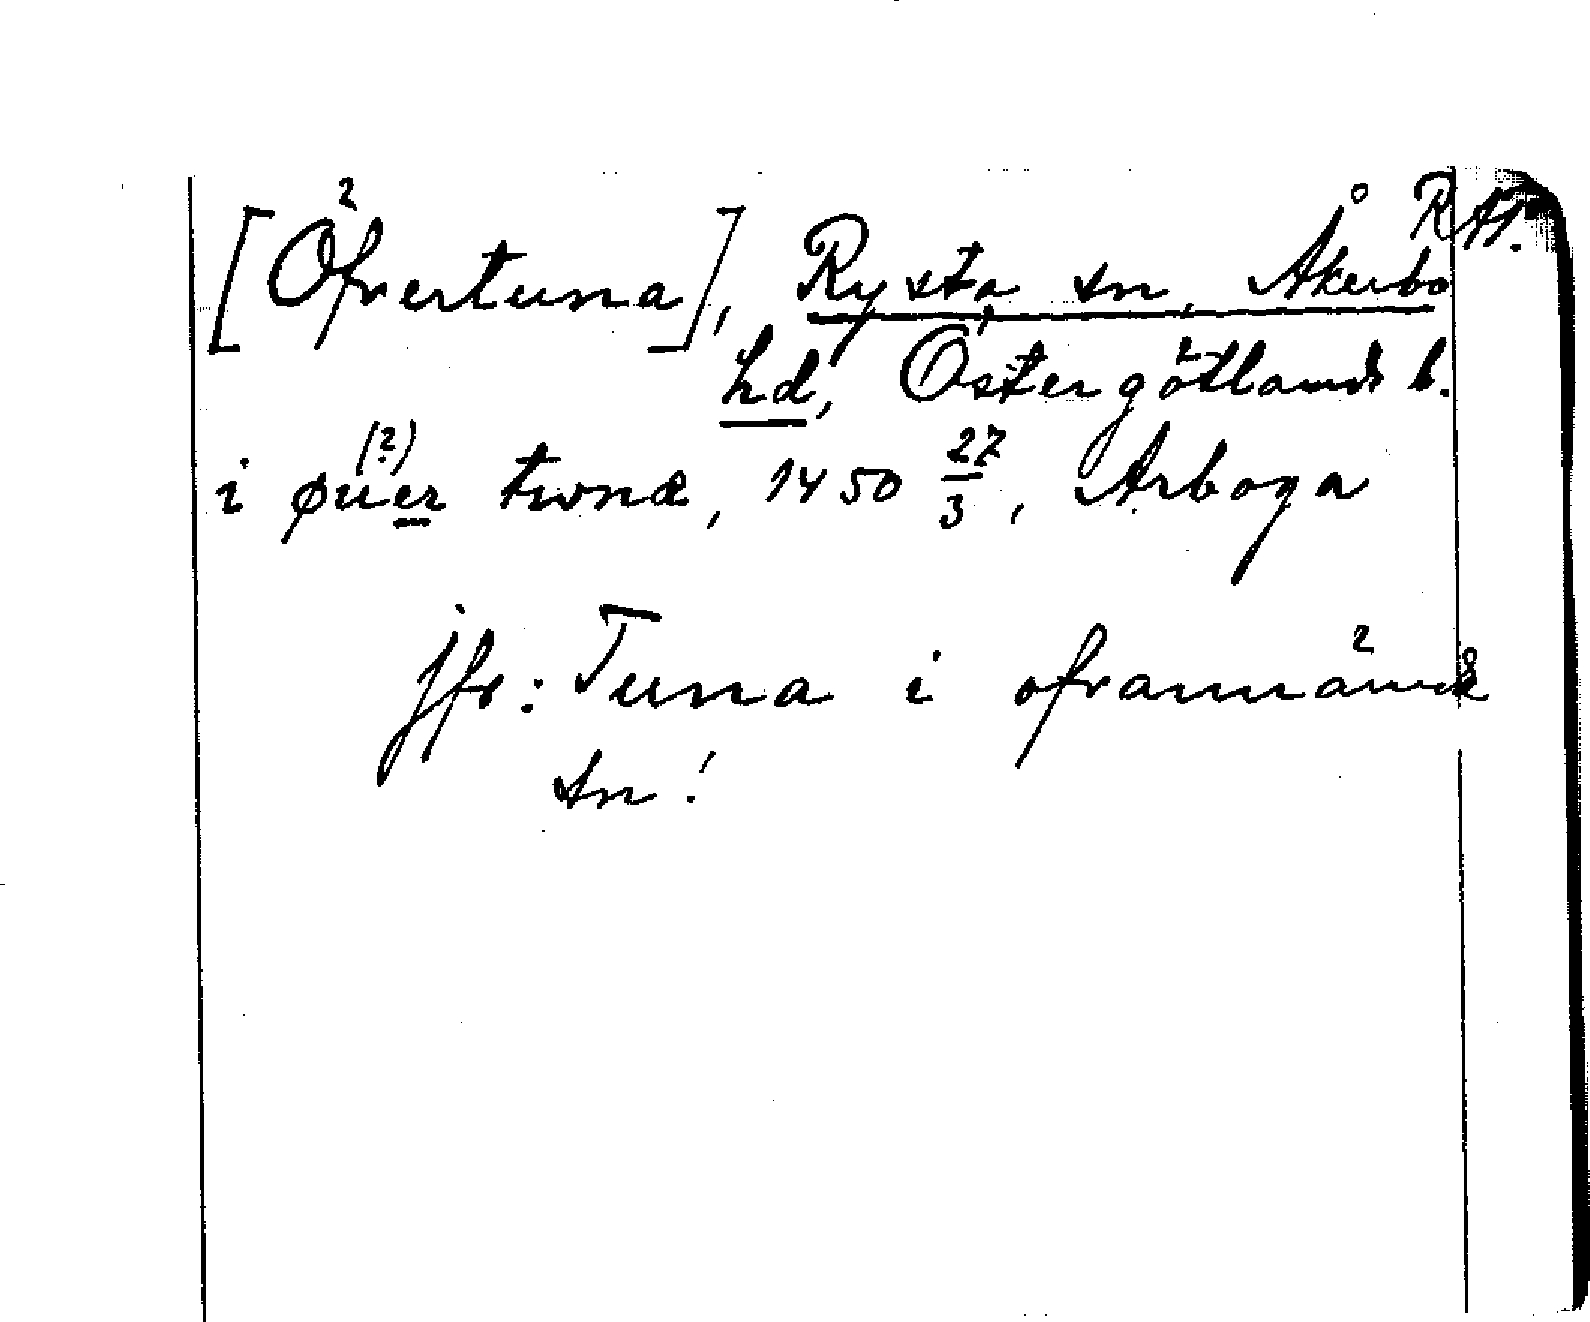 RA.
[Öfvertuna], Rysta sn, Åkerbo
hd, Östergötlands l.
i øuer (?) twnæ, 1450 27/3, Arboga
jfr: Tuna i ofvannämnda
sn!